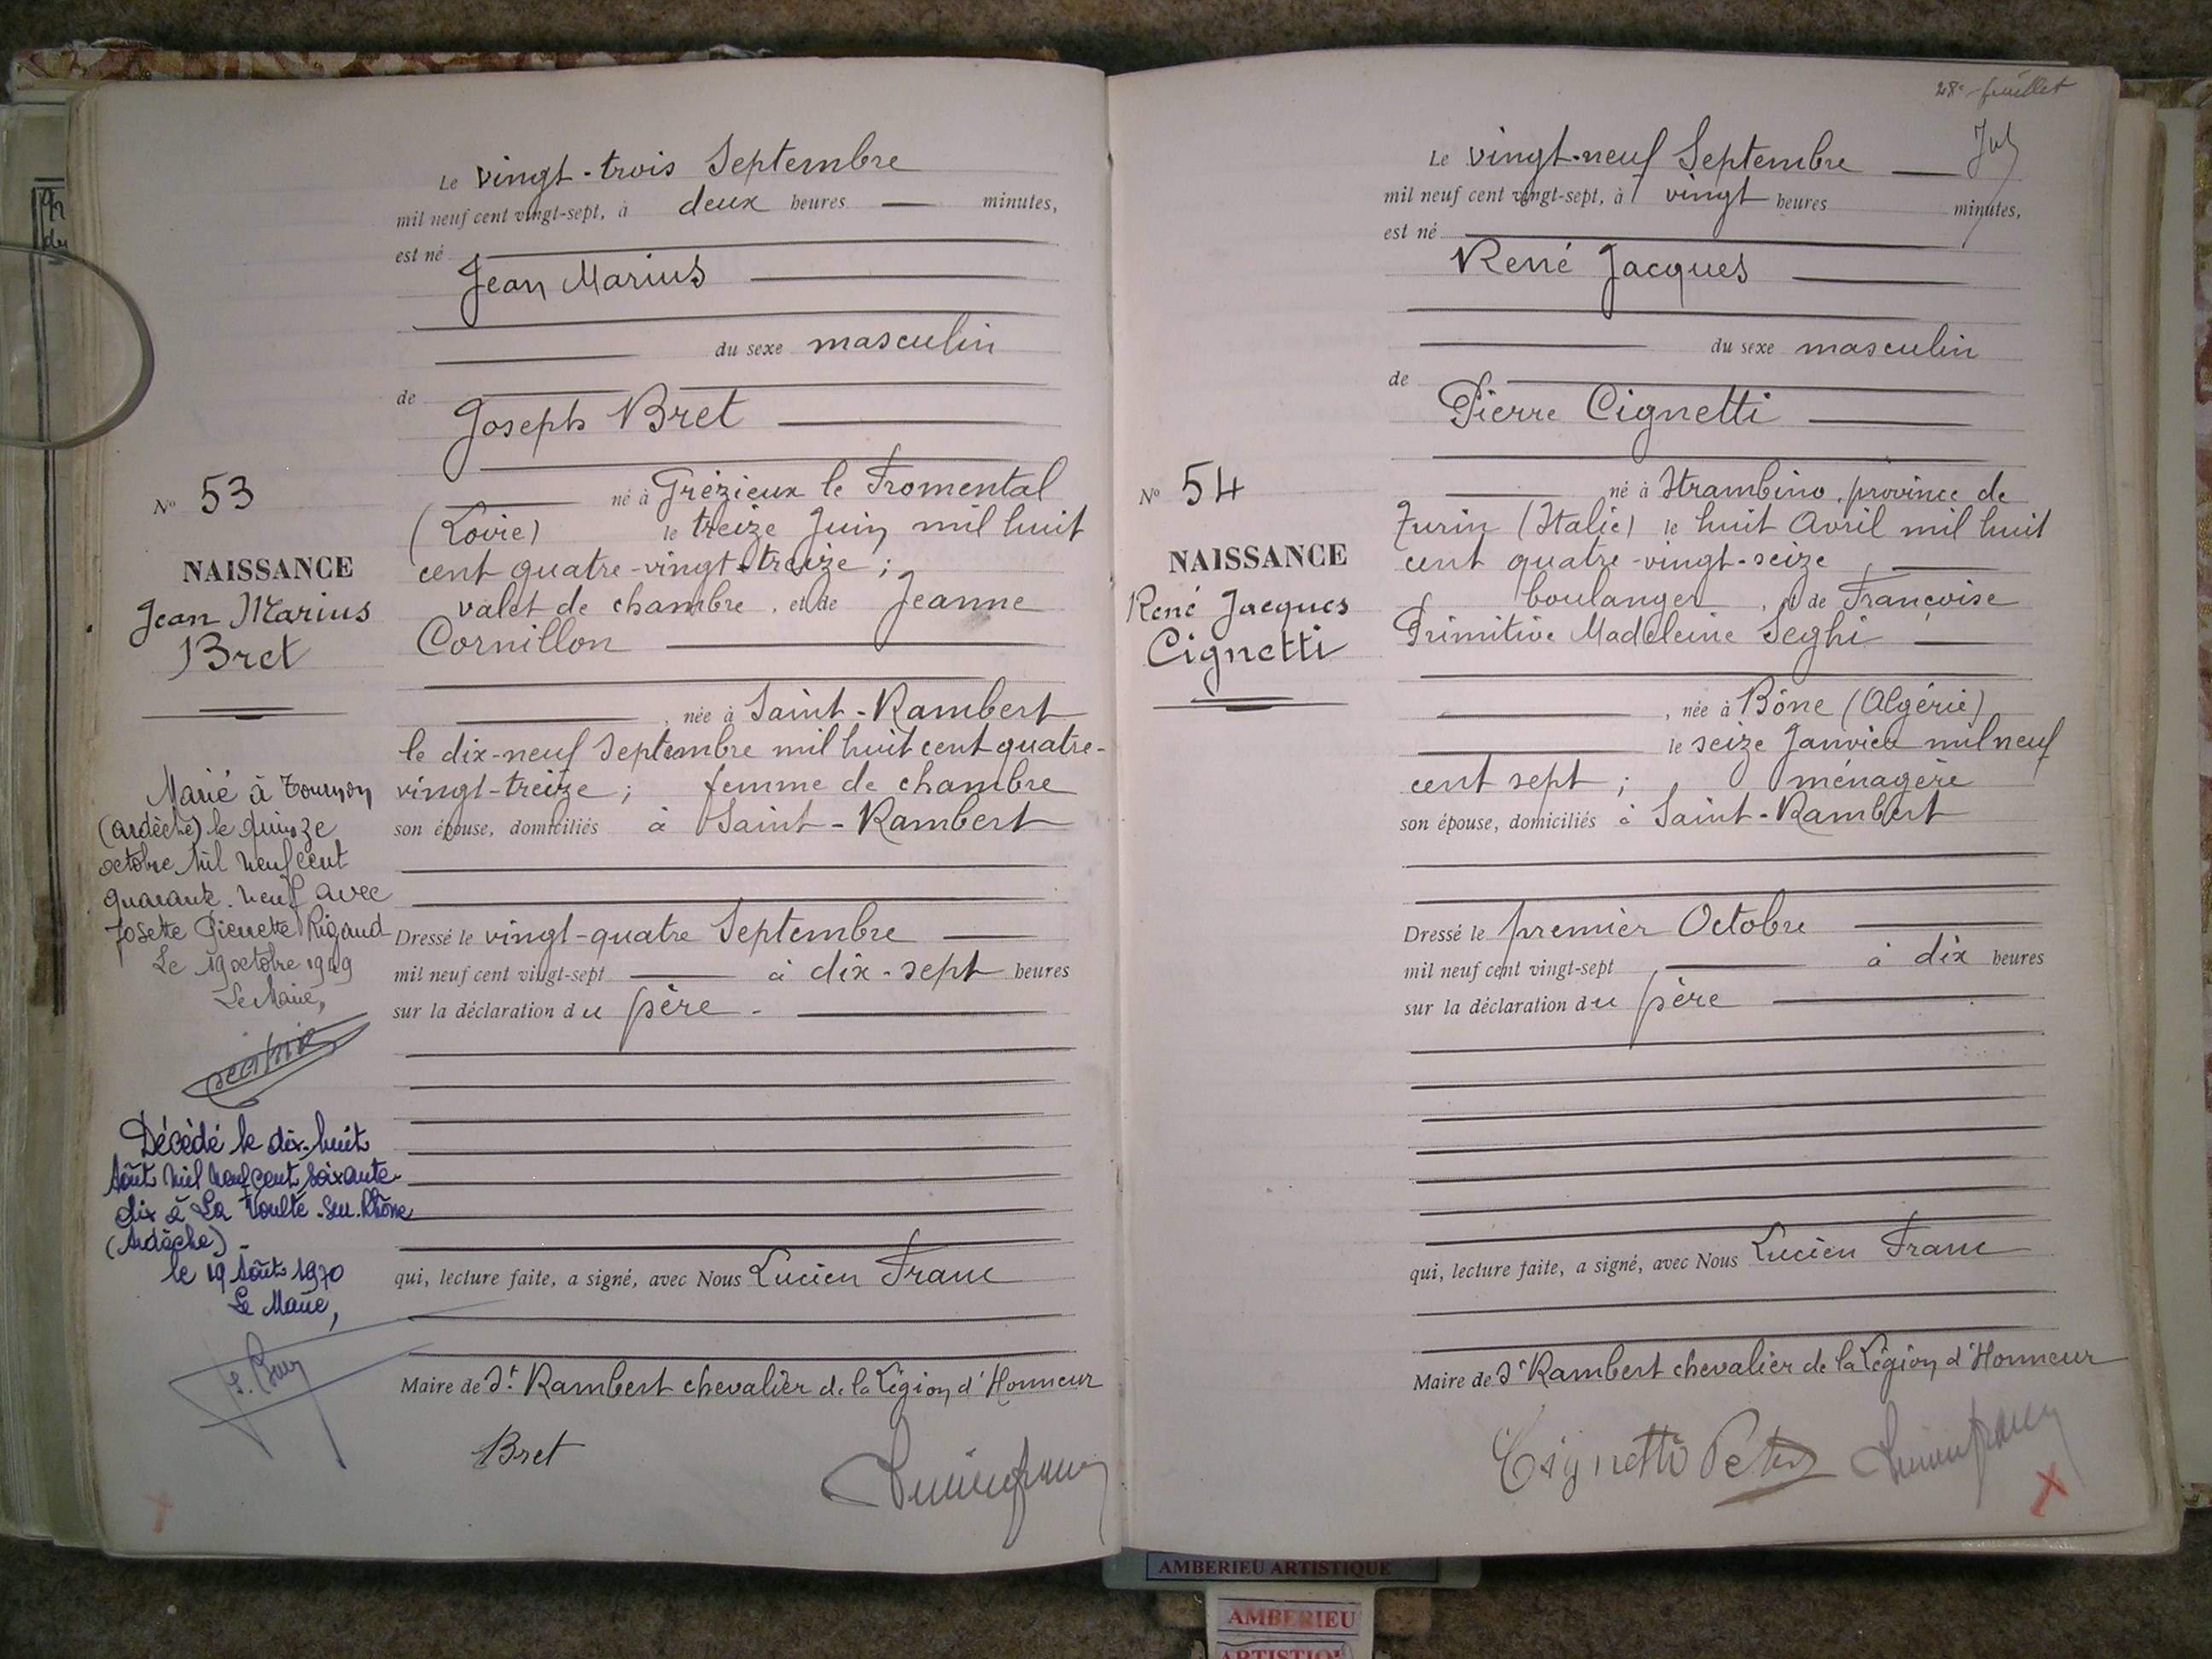 Le vingt-trois Septembre
mil neuf cent vingt-sept, à deux heures — minutes,
est né
Jean Marius
du sexe masculin
de
Joseph Bret
né à Grézieux le Fromental
(Loire) le treize Juin mil huit
cent quatre-vingt-treize ;
valet de chambre, et de Jeanne
Cornillon
, née à Saint-Rambert
le dix-neuf Septembre mil huit cent quatre-
vingt-treize ; femme de chambre
son épouse, domiciliés à Saint-Rambert
Dressé le vingt-quatre Septembre
mil neuf cent vingt-sept à dix-sept heures
sur la déclaration du père.
qui, lecture faite, a signé, avec Nous Lucien Franc
Maire de St Rambert chevalier de la Légion d'Honneur
Bret
Nº 53
NAISSANCE
Jean Marius
Bret
Marié à Tournon
(Ardèche) le quinze
octobre mil neuf cent
quarante-neuf avec
Josette Pierrette Rigaud
Le 19 octobre 1949
Le Maire,
Décédé le dix-huit
Août mil neuf cent soixante-
dix à La Voulte-sur-Rhône
(Ardèche) -
le 19 Août 1970
Le Maire,
28e feuillet
Le vingt-neuf Septembre
mil neuf cent vingt-sept, à vingt heures minutes,
est né
René Jacques
du sexe masculin
de
Pierre Cignetti
né à Strambino, province de
Turin (Italie) le huit Avril mil huit
cent quatre-vingt-seize
boulanger, et de Françoise
Primitive Madeleine Seghi
, née à Bône (Algérie)
le seize Janvier mil neuf
cent sept ; ménagère
son épouse, domiciliés à Saint-Rambert
Dressé le premier Octobre
mil neuf cent vingt-sept à dix heures
sur la déclaration du père
qui, lecture faite, a signé, avec Nous Lucien Franc
Maire de St Rambert chevalier de la Légion d'Honneur
Cignetti
Nº 54
NAISSANCE
René Jacques
Cignetti
AMBERIEU ARTISTIQUE
AMBERIEU